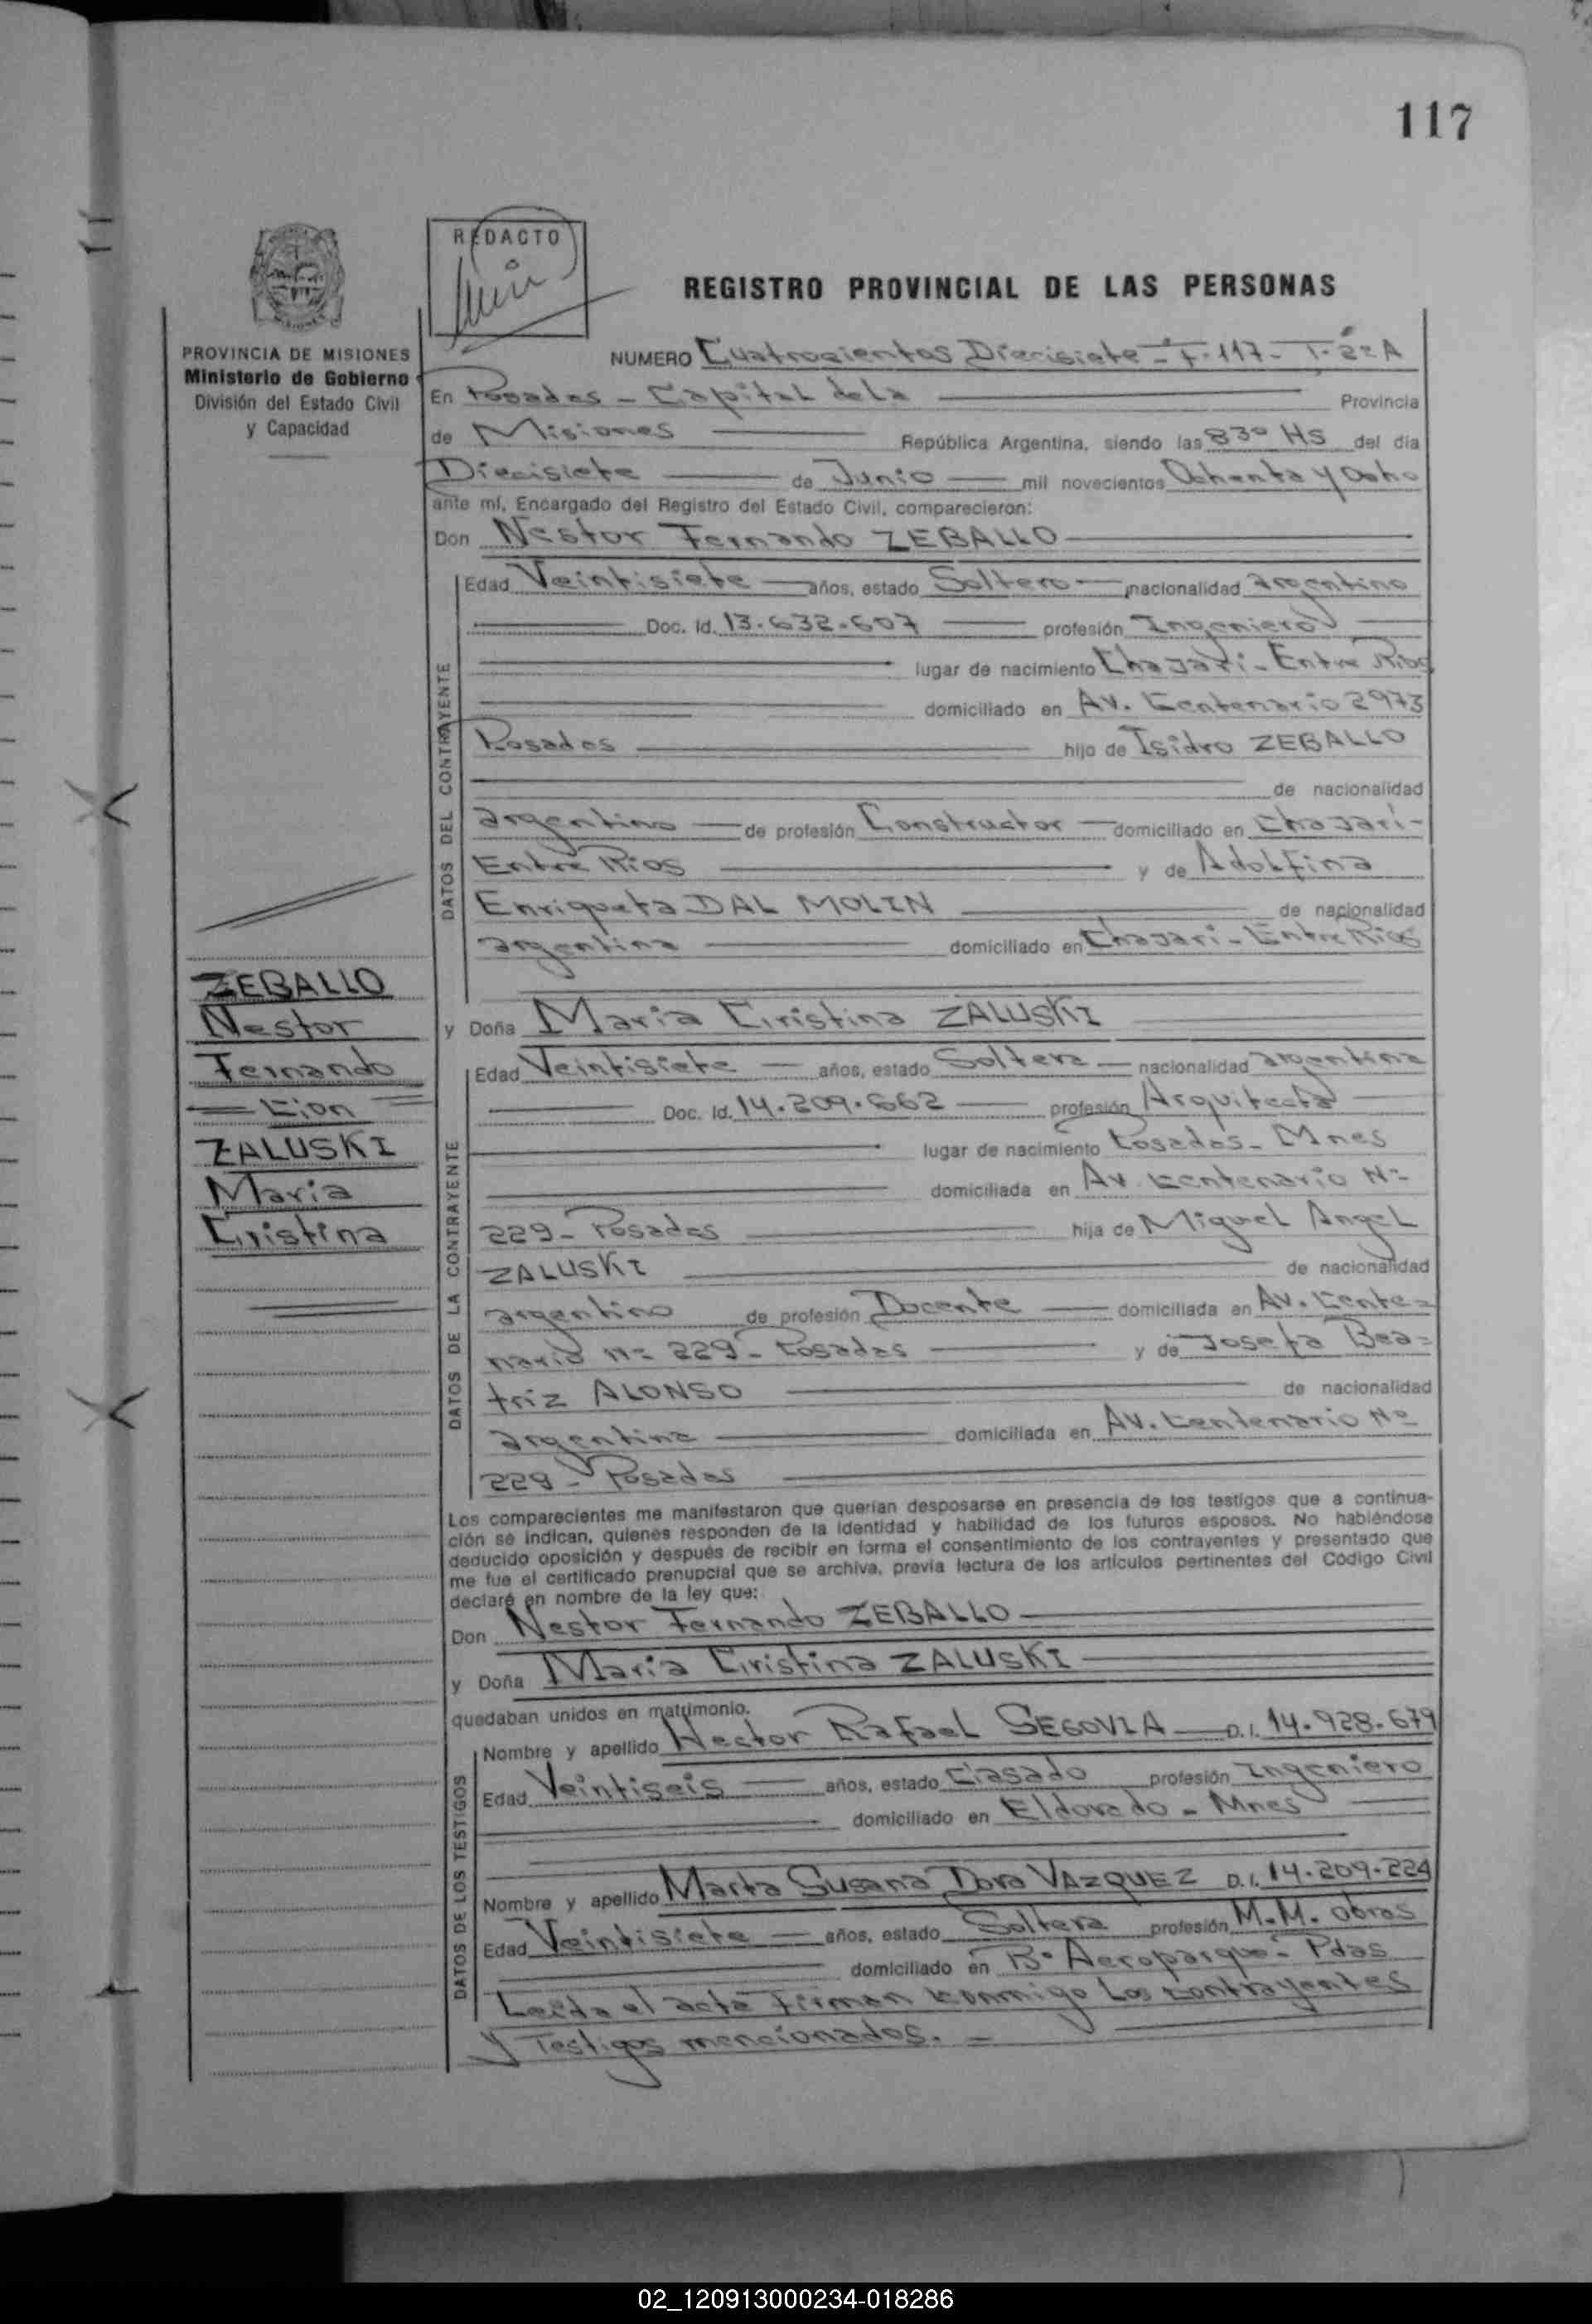 117
REDACTO
REGISTRO PROVINCIAL DE LAS PERSONAS
PROVINCIA DE MISIONES
Ministerio de Gobierno
División del Estado Civil
y Capacidad
NUMERO Cuatrocientos Diecisiete - F. 117 - T. 2º A
En Posadas - Capital de la Provincia
de Misiones República Argentina, siendo las 8³⁰ HS del día
Diecisiete de Junio mil novecientos Ochenta y Ocho
ante mí, Encargado del Registro del Estado Civil, comparecieron:
Don Nestor Fernando ZEBALLO
DATOS DEL CONTRAYENTE
Edad Veintisiete años, estado Soltero nacionalidad argentino
Doc. Id. 13.632.607 profesión Ingeniero
lugar de nacimiento Chajarí - Entre Rios
domiciliado en Av. Centenario 2973
Posadas hijo de Isidro ZEBALLO
de nacionalidad
argentino de profesión Constructor domiciliado en Chajarí -
Entre Rios y de Adolfina
Enriqueta DAL MOLIN de nacionalidad
argentina domiciliado en Chajari - Entre Rios
ZEBALLO
Nestor
Fernando
Con
ZALUSKI
Maria
Cristina
y Doña Maria Cristina ZALUSKI
DATOS DE LA CONTRAYENTE
Edad Veintisiete años, estado Soltera nacionalidad argentina
Doc. Id. 14.209.662 profesión Arquitecta
lugar de nacimiento Posadas - Mnes
domiciliada en Av Centenario Nº
229 - Posadas hija de Miguel Angel
ZALUSKI de nacionalidad
argentino de profesión Docente domiciliada en Av. Cente=
nario Nº 229 - Posadas y de Josefa Bea=
triz ALONSO de nacionalidad
argentina domiciliada en Av. Centenario Nº
229 - Posadas
Los comparecientes me manifestaron que querían desposarse en presencia de los testigos que a continua-
ción se indican, quienes responden de la identidad y habilidad de los futuros esposos. No habiéndose
deducido oposición y después de recibir en forma el consentimiento de los contrayentes y presentado que
me fue el certificado prenupcial que se archiva, previa lectura de los artículos pertinentes del Código Civil
declaré en nombre de la ley que:
Don Nestor Fernando ZEBALLO
y Doña Maria Cristina ZALUSKI
quedaban unidos en matrimonio.
DATOS DE LOS TESTIGOS
Nombre y apellido Hector Rafael SEGOVIA D.I. 14.928.679
Edad Veintiseis años, estado Casado profesión Ingeniero
domiciliado en Eldorado - Mnes
Nombre y apellido Marta Susana Dora VAZQUEZ D.I. 14.209.224
Edad Veintisiete años, estado Soltera profesión M.M. obras
domiciliado en Bº Aeroparque - Pdas
Leída el acta firman conmigo los contrayentes
y Testigos mencionados. =
02_120913000234-018286